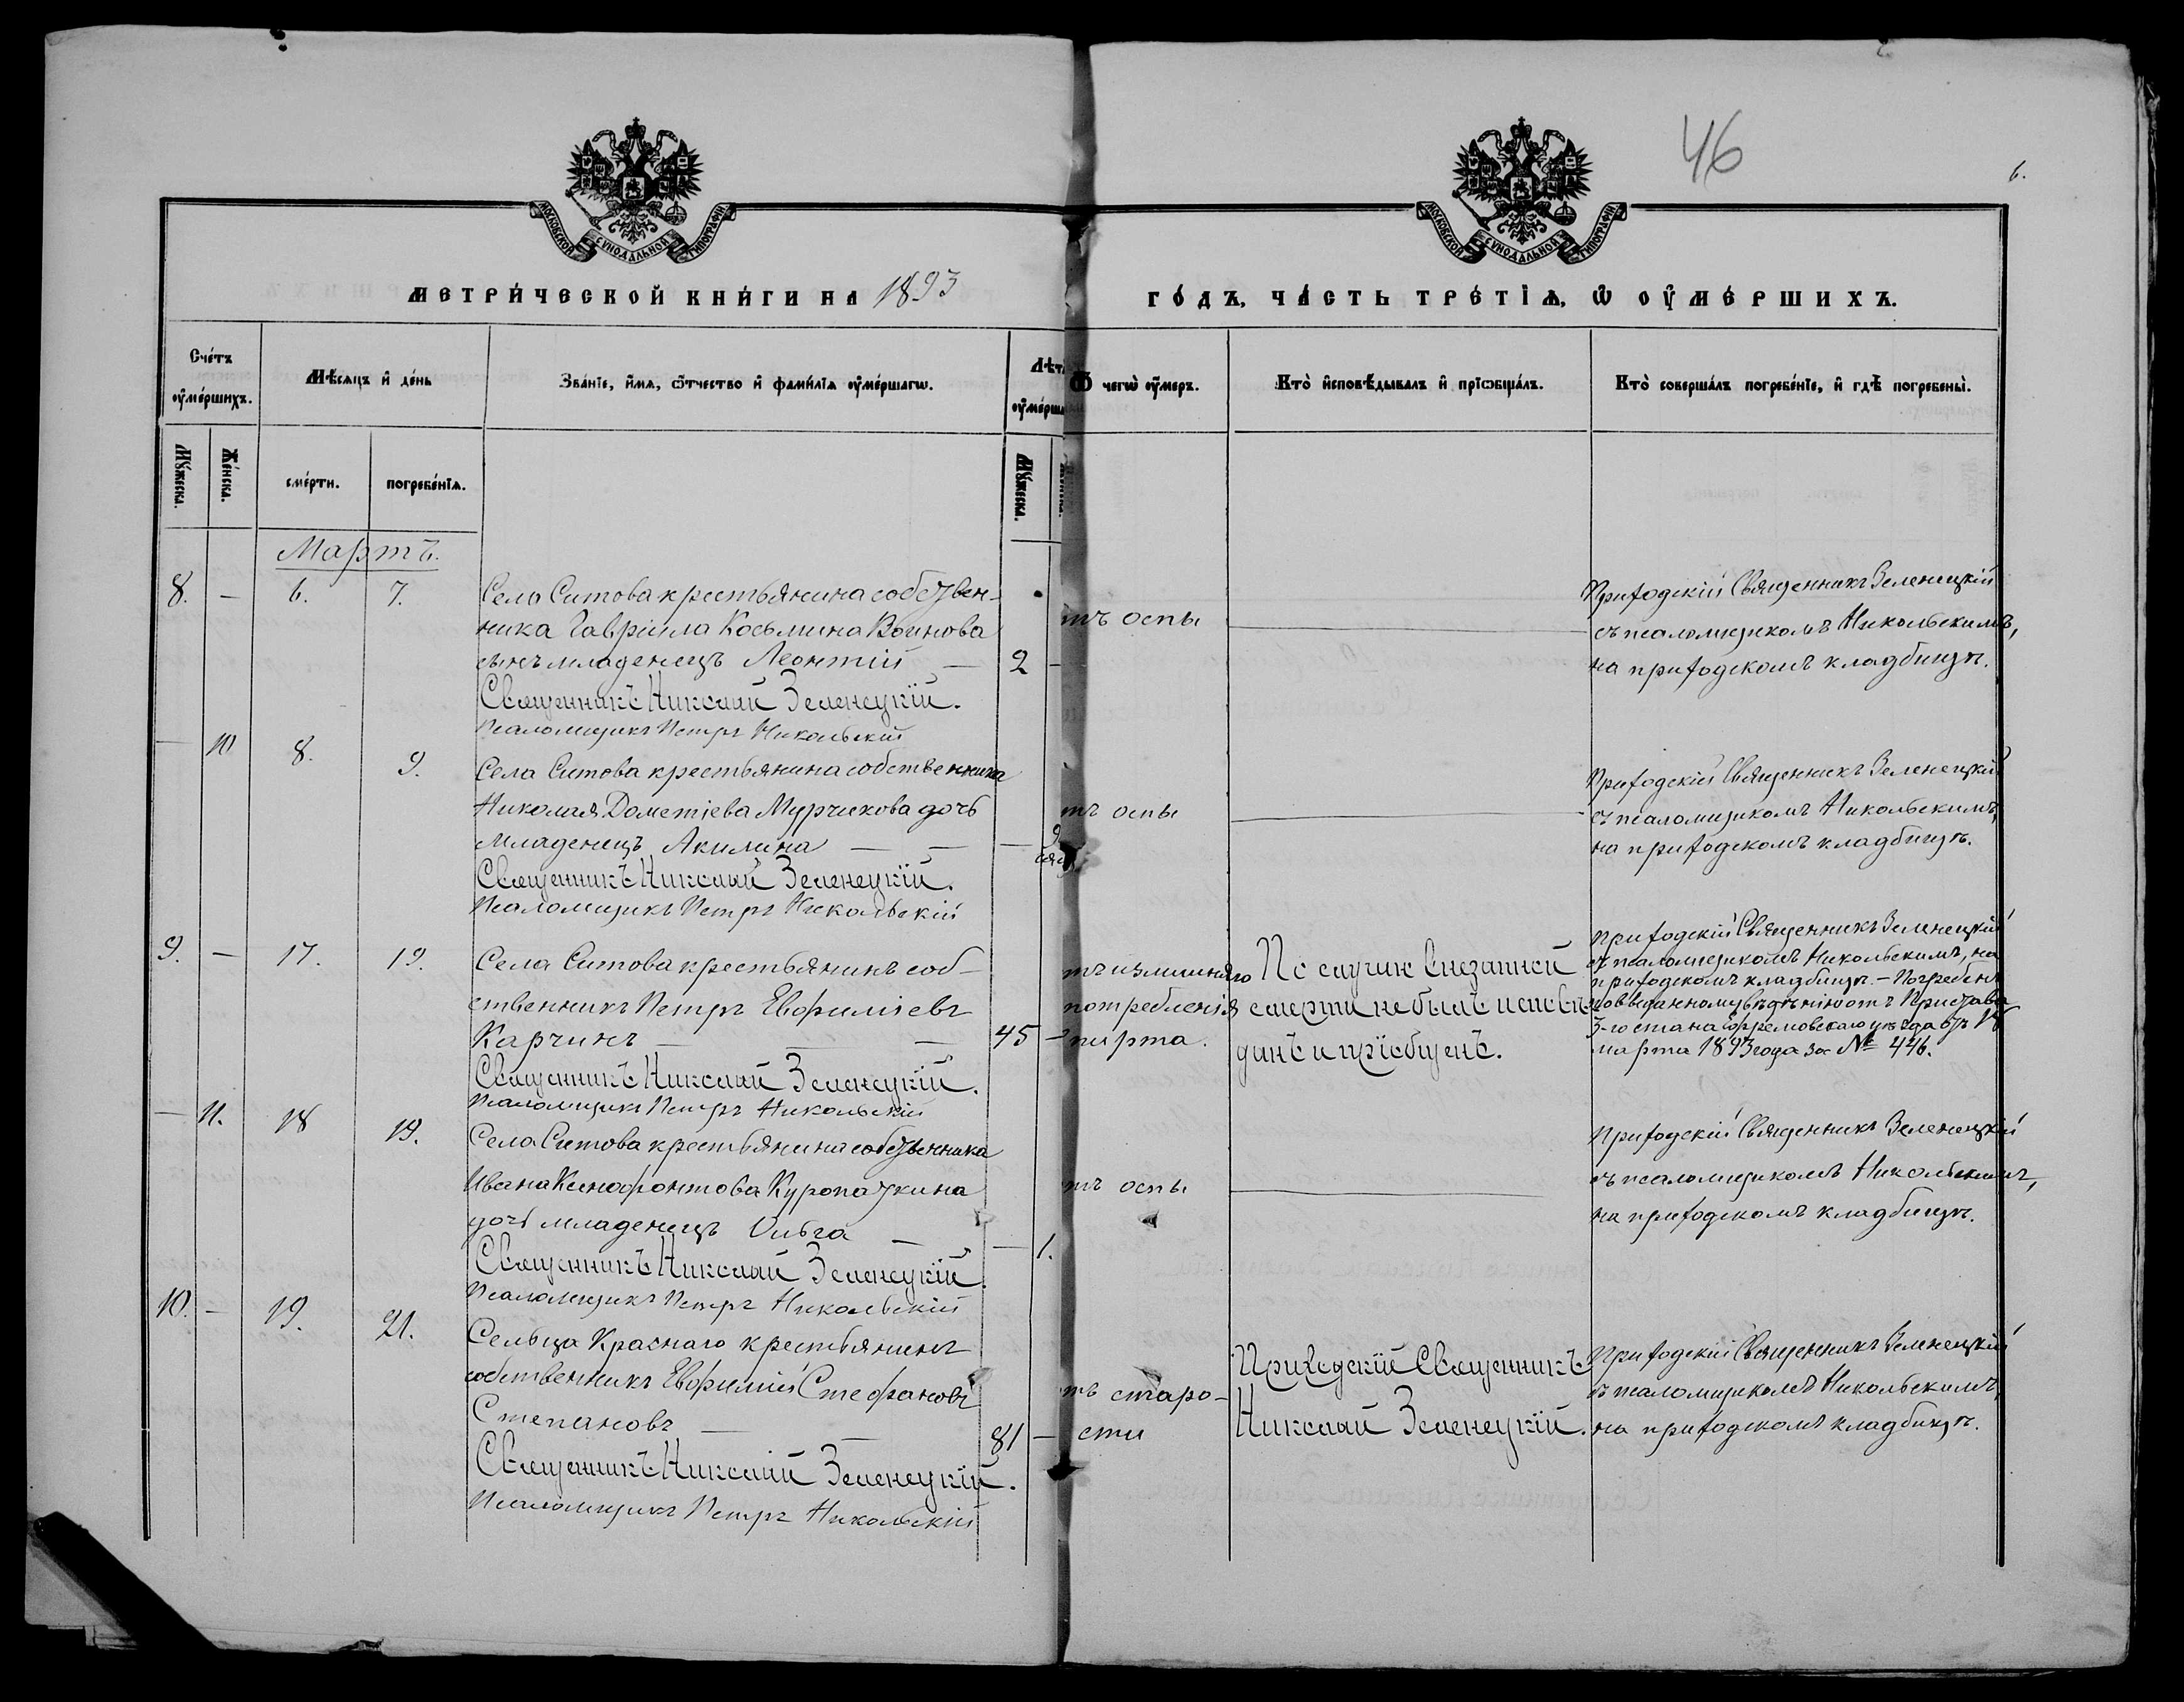 46
6.
МОСКОВСКОЙ СѴНОДАЛЬНОЙ ТИПОГРАФІИ
МОСКОВСКОЙ СѴНОДАЛЬНОЙ ТИПОГРАФІИ
МЕТРИ́ЧЕСКОЙ КНИ́ГИ НА 1893
ГО́ДЪ, ЧА́СТЬ ТРЕ́ТІѦ, Ѡ҆ ОУ҆МЕ́РШИХЪ.
Сче́тъ
оу҆ме́ршихъ.
Мѣ́сяцъ и҆ де́нь
Зва́нїе, и҆́мѧ, ѻ҆́тчество и҆ фами́лїѧ оу҆ме́ршагѡ.
Лѣ́т
оу҆ме́рша
Ѿ чегѡ̀ оу҆́меръ.
Кто̀ и҆сповѣ́дывалъ и҆ прїѡбща́лъ.
Кто̀ соверша́лъ погребе́нїе, и҆ гдѣ̀ погребены̀.
Мꙋ́жеска.
Же́нска.
сме́рти.
погребе́нїѧ.
Мꙋ́жеска.
Мартъ.
8. — 6. 7.
Села Ситова крестьянина собствен-
ника Гавріила Косьмина Воинова
сынъ младенецъ Леонтій — 2 —
Священникъ Николай Зеленецкій.
Псаломщикъ Петръ Никольскій
тъ оспы
Приходскій Священникъ Зеленецкій
съ псаломщикомъ Никольскимъ,
на приходскомъ кладбищѣ.
— 10 8. 9.
Села Ситова крестьянина собственника
Николая Дометіева Мурчикова дочь
младенецъ Акилина — — — 9
Священникъ Николай Зеленецкій.
Псаломщикъ Петръ Никольскій
тъ оспы
Приходскій Священникъ Зеленецкій
съ псаломщикомъ Никольскимъ,
на приходскомъ кладбищѣ.
9. — 17. 19.
Села Ситова крестьянинъ соб-
ственникъ Петръ Евфиміевъ
Карчинъ — — — 45 —
Священникъ Николай Зеленецкій.
Псаломщикъ Петръ Никольскій
тъ излишняго
потребленія
спирта.
По случаю внезапной
смерти не былъ исповѣ-
данъ и пріобщенъ.
Приходскій Священникъ Зеленецкій
съ псаломщикомъ Никольскимъ, на
приходскомъ кладбищѣ. – Погребенъ
по выданному свѣдѣнію отъ Пристава
3-го стана Ефремовскаго уѣзда отъ 18
марта 1893 года за № 446.
— 11. 18 19.
Села Ситова крестьянина собственника
Ивана Ксенофонтова Куропаткина
дочь младенецъ Ольга — — 1.
Священникъ Николай Зеленецкій.
Псаломщикъ Петръ Никольскій
тъ оспы
Приходскій Священникъ Зеленецкій
съ псаломщикомъ Никольскимъ,
на приходскомъ кладбищѣ.
10. — 19. 21.
Сельца Краснаго крестьянинъ
собственникъ Евфимій Стефановъ
Степановъ — — 81 —
Священникъ Николай Зеленецкій.
Псаломщикъ Петръ Никольскій
тъ старо-
сти
Приходскій Священникъ
Николай Зеленецкій.
Приходскій Священникъ Зеленецкій
съ псаломщикомъ Никольскимъ,
на приходскомъ кладбищѣ.